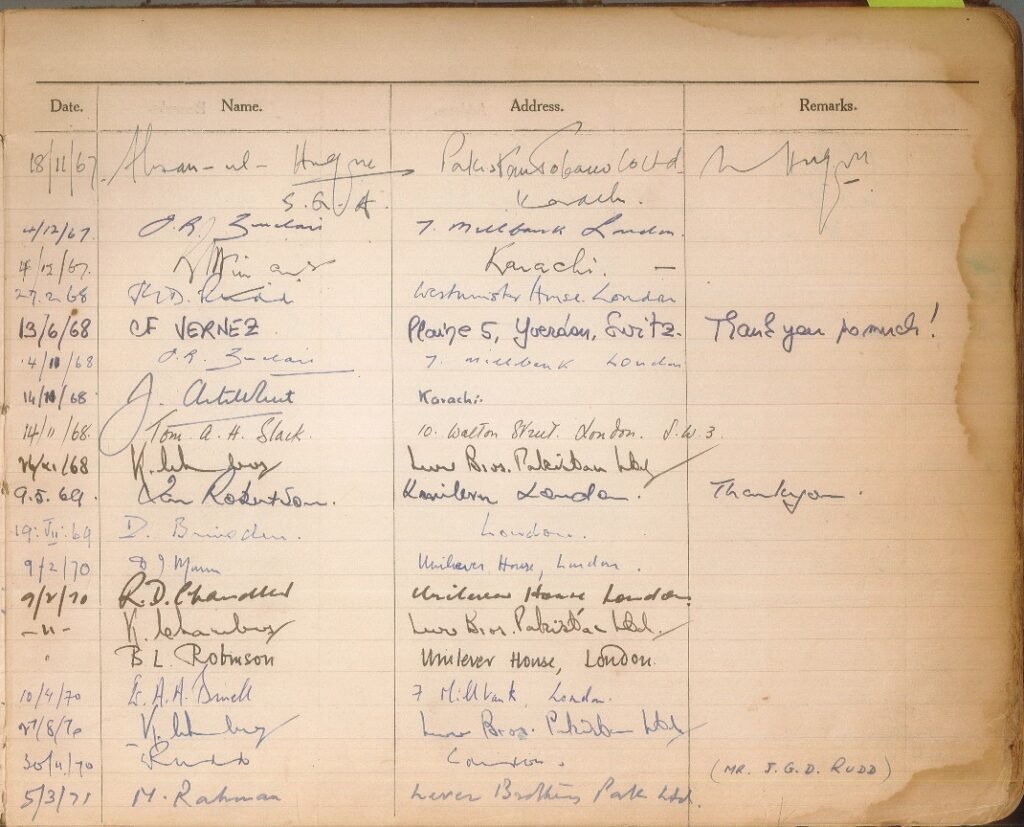 Date. Name. Address. Remarks.
18/11/67. Ahsan-ul- Huque Pakistan Tobacco Co Ltd
S. G. A. Karachi.
4/12/67. J.R. Sinclair 7. Millbank London.
4/12/67. Karachi. —
27.2.68 Rudd Westminster House. London
13/6/68 CF VERNEZ Plaine 5, Yverdon, Switz. Thank you so much!
14/11/68 J.R. Sinclair 7. Millbank London
14/11/68 J. Karachi.
14/11/68. Tom A. H. Slack. 10. Walton Street. London. S.W.3.
/68 K. Lever Bros. Pakistan Ltd
9.5.69. Ian Robertson. Unilever London. Thankyou.
19:VII:69 D. London.
9/2/70 D J Mann Unilever House, London.
9/2/70 R.D. Chandler Unilever House London.
-"- K. Lever Bros. Pakistan Ltd.
" B L. Robinson Unilever House, London.
10/4/70 A.A. 7 Millbank, London.
27/8/70 K. Lever Bros. Pakistan Ltd
30/11/70 Rudd London. (MR. J.G.D. RUDD)
5/3/71 M. Rahman Lever Brothers Pak Ltd.